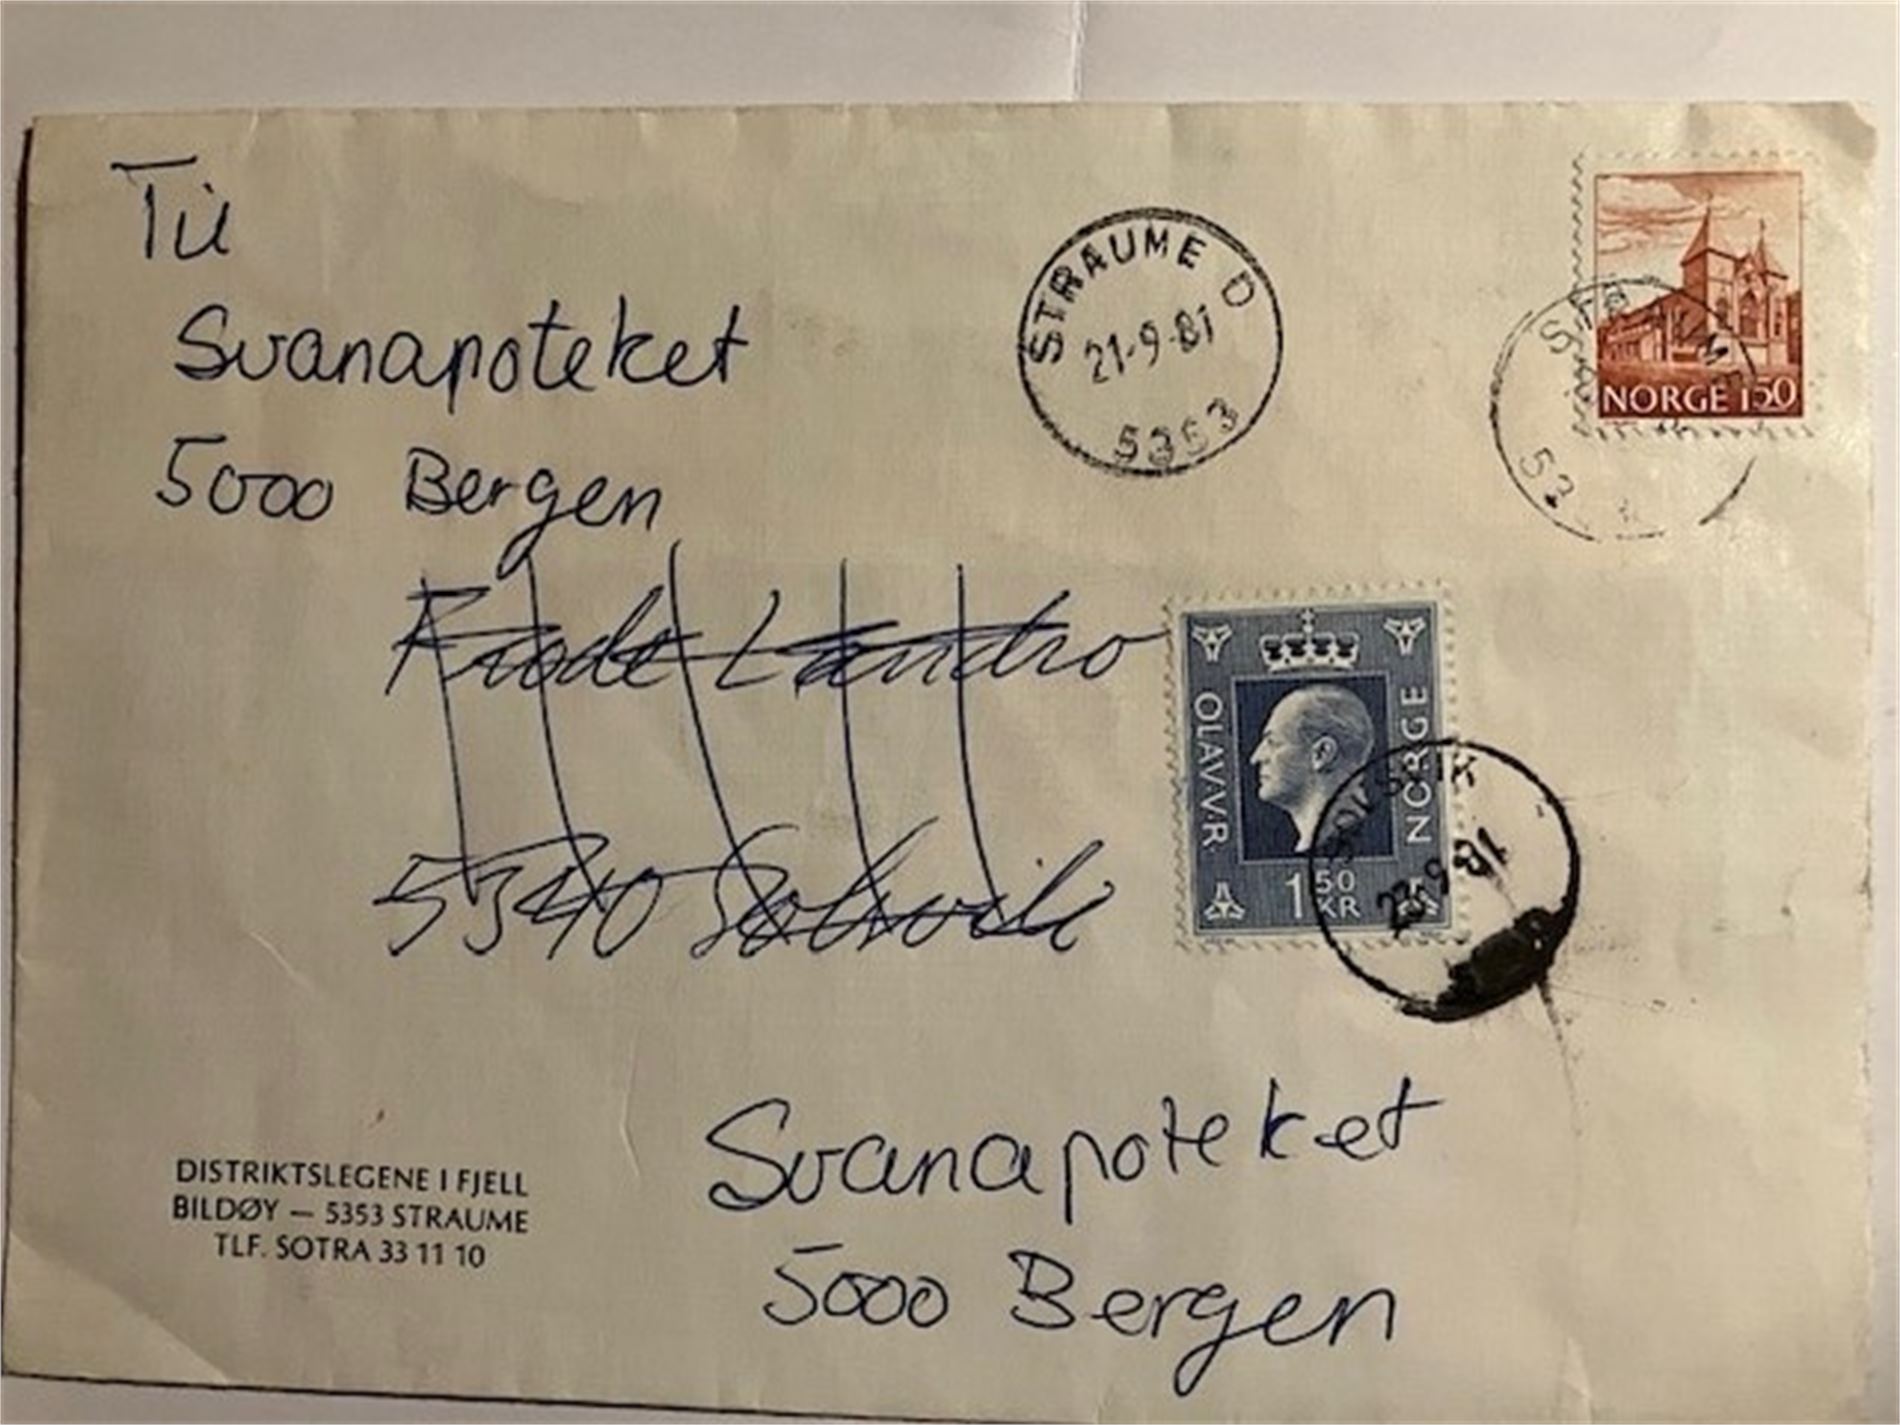 Til
Svanapoteket
5000 Bergen
STRAUME D
21-9-81
5353
NORGE 150
Frode Landro
5340 Solsvik
OLAV·V·R
NORGE
1 50 KR
SOLSVIK
23-9-81
Svanapoteket
5000 Bergen
DISTRIKTSLEGENE I FJELL
BILDØY — 5353 STRAUME
TLF. SOTRA 33 11 10